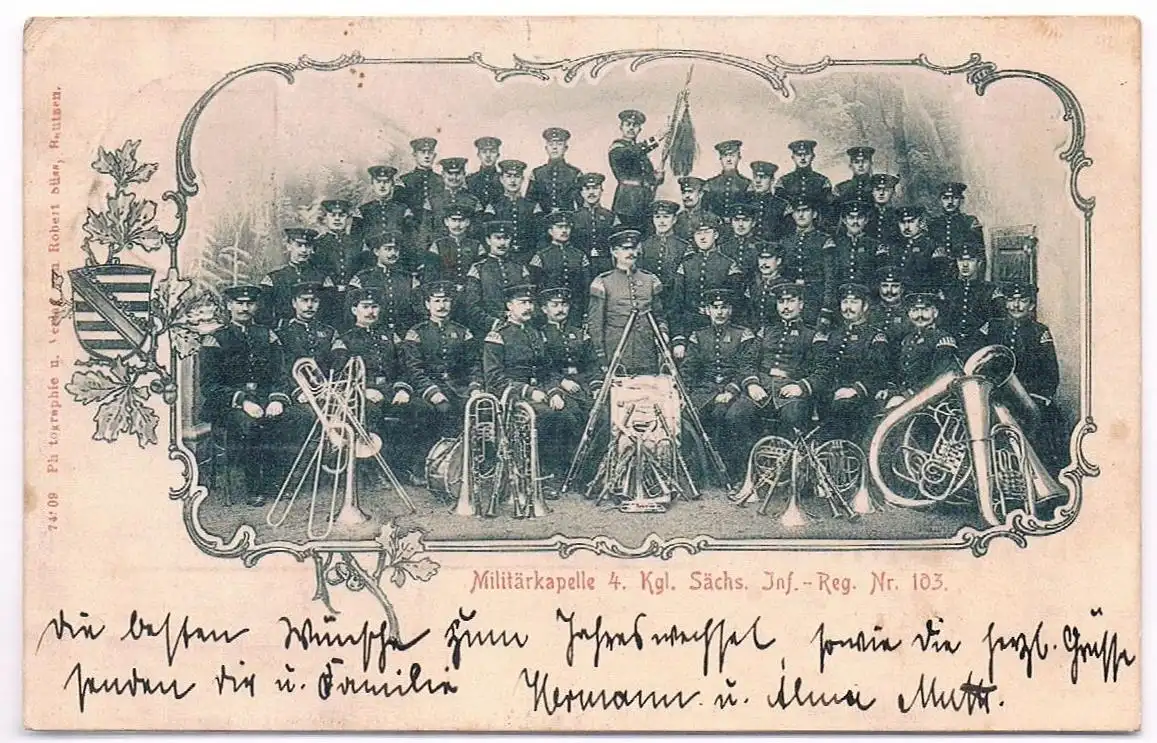 Militärkapelle 4. Kgl. Sächs. Inf.-Reg. Nr. 103.
Die besten Wünsche zum Jahreswechsel, sowie die herzl. Grüsse
senden dir u. Familie Hermann u. Alma
Photographie u. Verlag von Robert Süss, Bautzen.